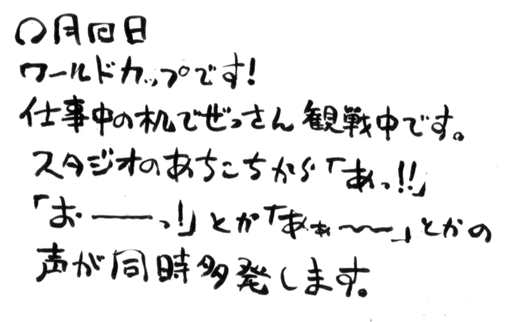 〇月回日
ワールドカップです!
仕事中の机でぜっさん観戦中です。
スタジオのあちこちから「あっ!!」
「おーーっ!」とか「あぁぁ〜〜」とかの
声が同時多発します。